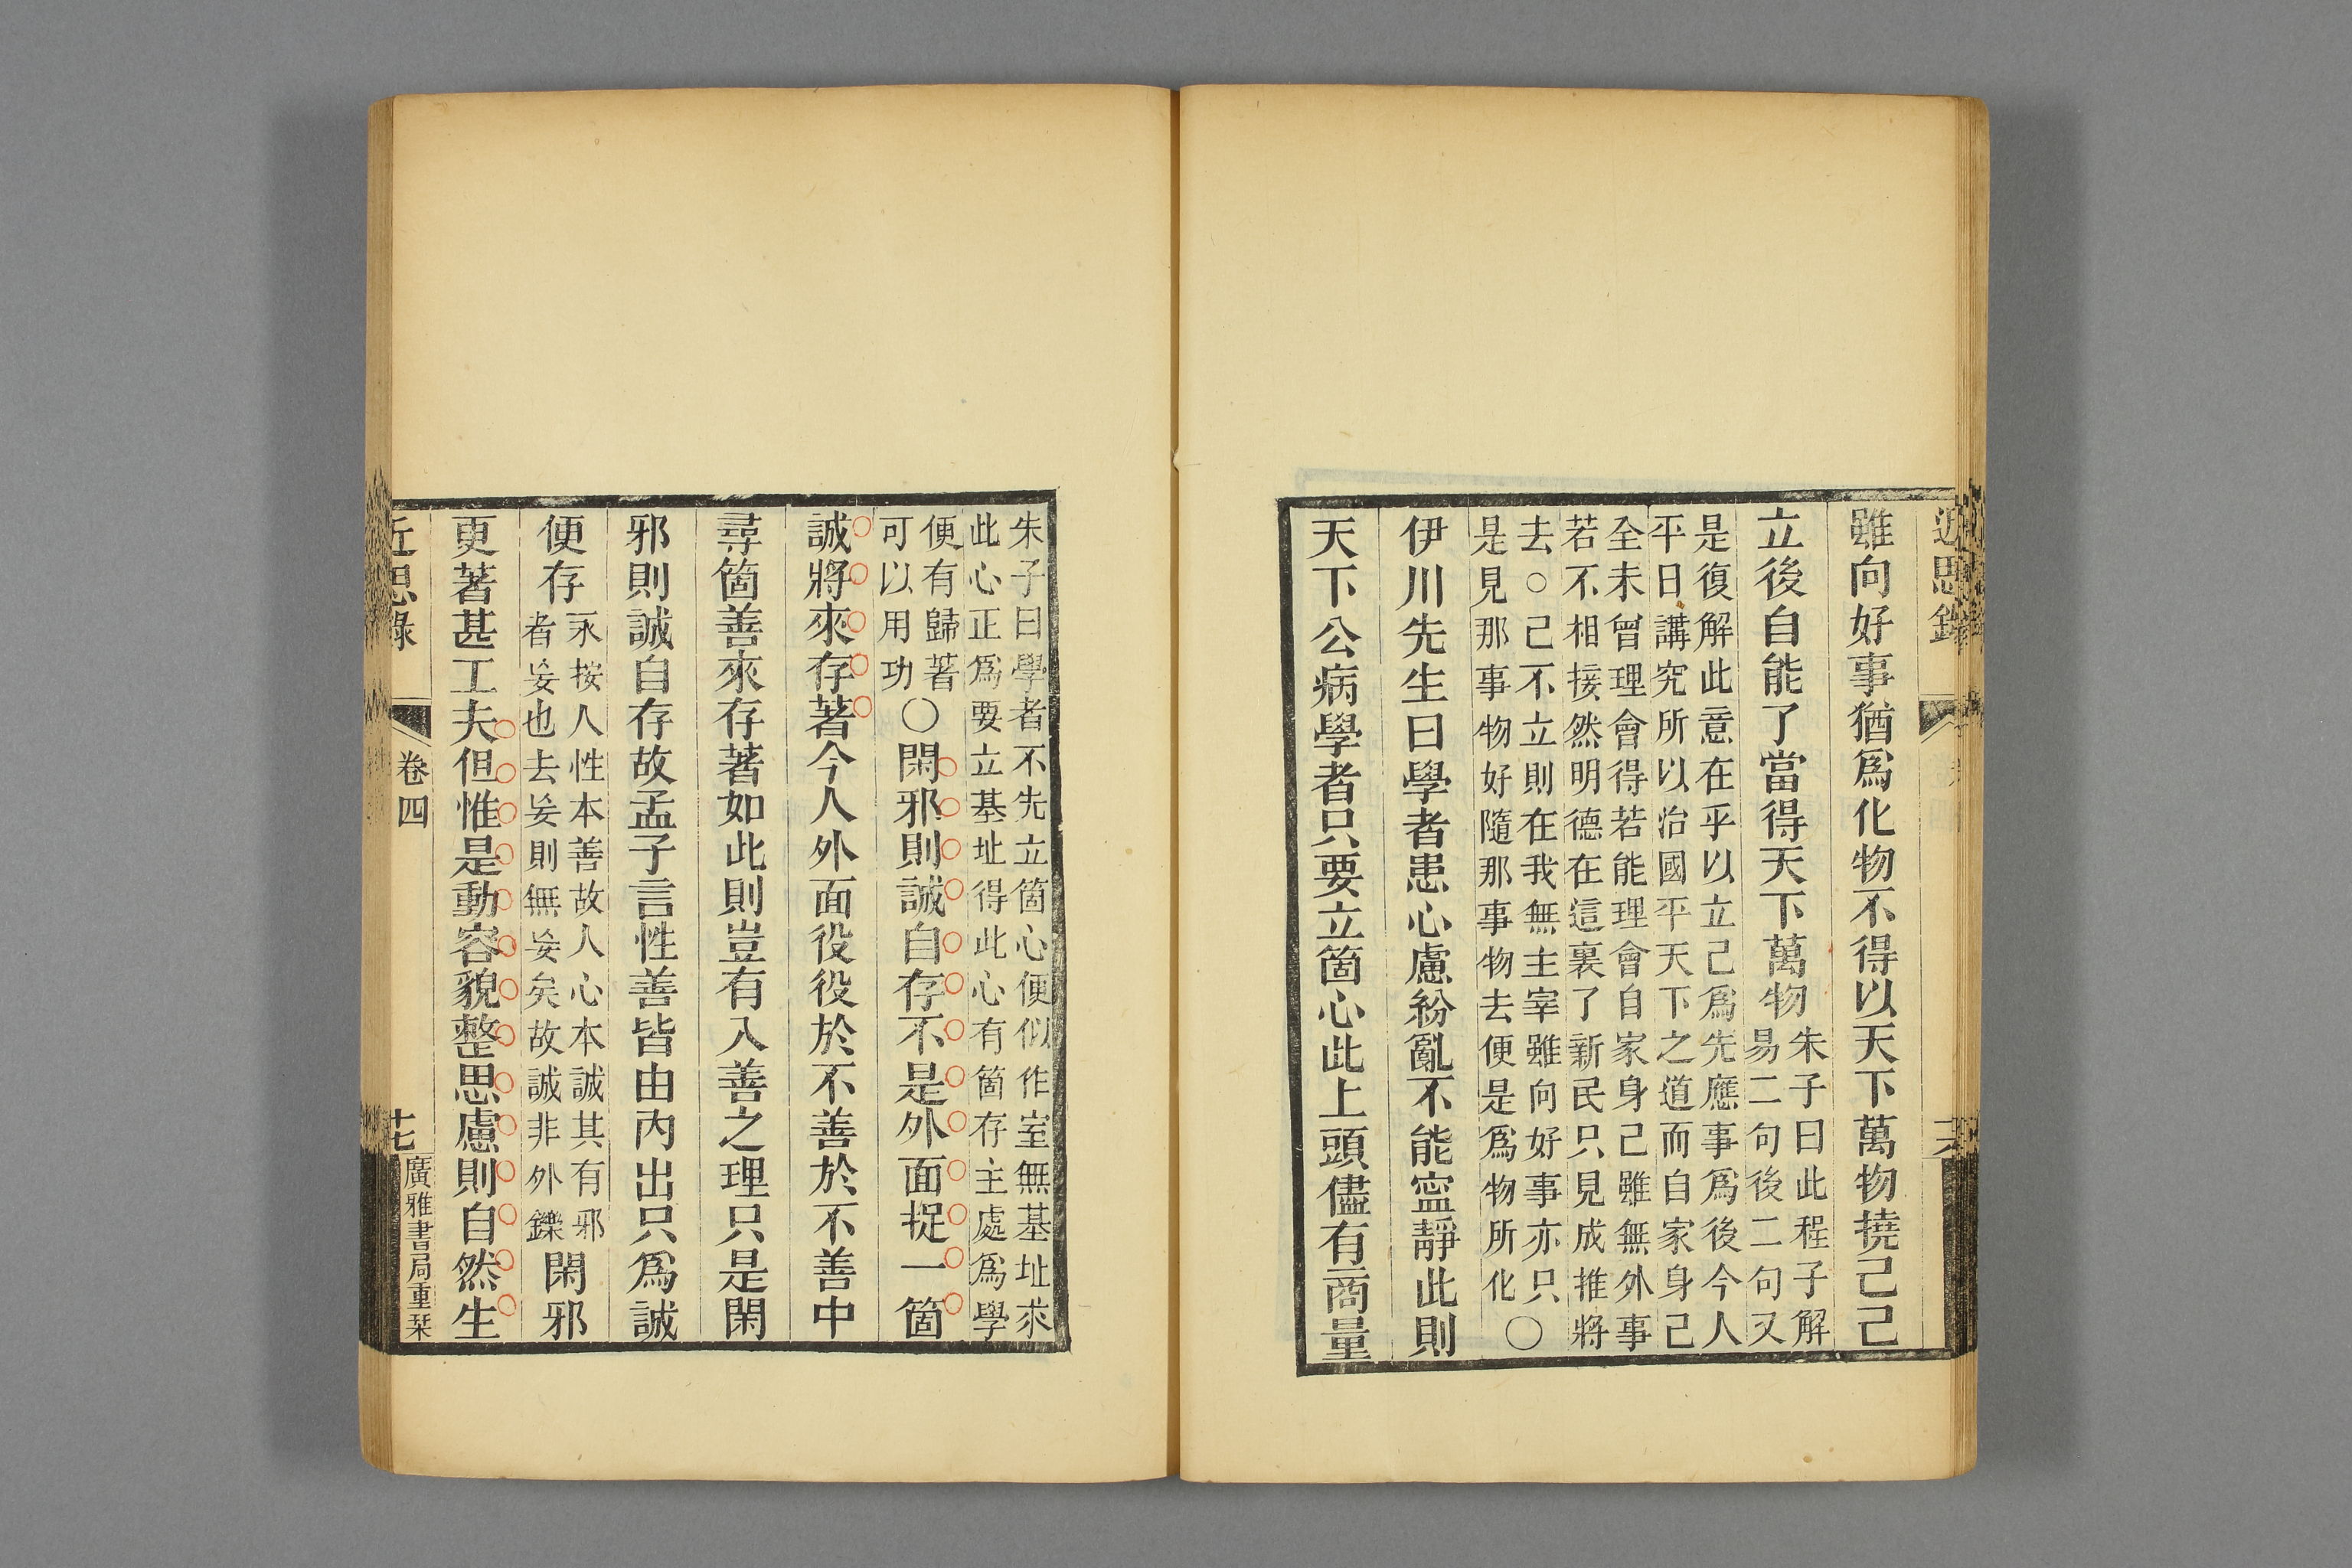 近思錄
雖向好事猶爲化物不得以天下萬物撓己己
立後自能了當得天下萬物
朱子曰此程子解
易二句後二句又
是復解此意在乎以立己爲先應事爲後今人
平日講究所以治國平天下之道而自家身己
全未曾理會得若能理會自家身己雖無外事
若不相接然明德在這裏了新民只見成推將
去○己不立則在我無主宰雖向好事亦只
是見那事物好隨那事物去便是爲物所化
○
伊川先生曰學者患心慮紛亂不能寍靜此則
天下公病學者只要立箇心此上頭儘有商量
朱子曰學者不先立箇心便似作室無基址求
此心正爲要立基址得此心有箇存主處爲學
便有歸著
可以用功
○閑邪則誠自存不是外面捉一箇
誠將來存著今人外面役役於不善於不善中
尋箇善來存著如此則豈有入善之理只是閑
邪則誠自存故孟子言性善皆由內出只爲誠
便存
永按人性本善故人心本誠其有邪
者妄也去妄則無妄矣故誠非外鑠
閑邪
更著甚工夫但惟是動容貌整思慮則自然生
近思錄
卷四
十七
廣雅書局重栞